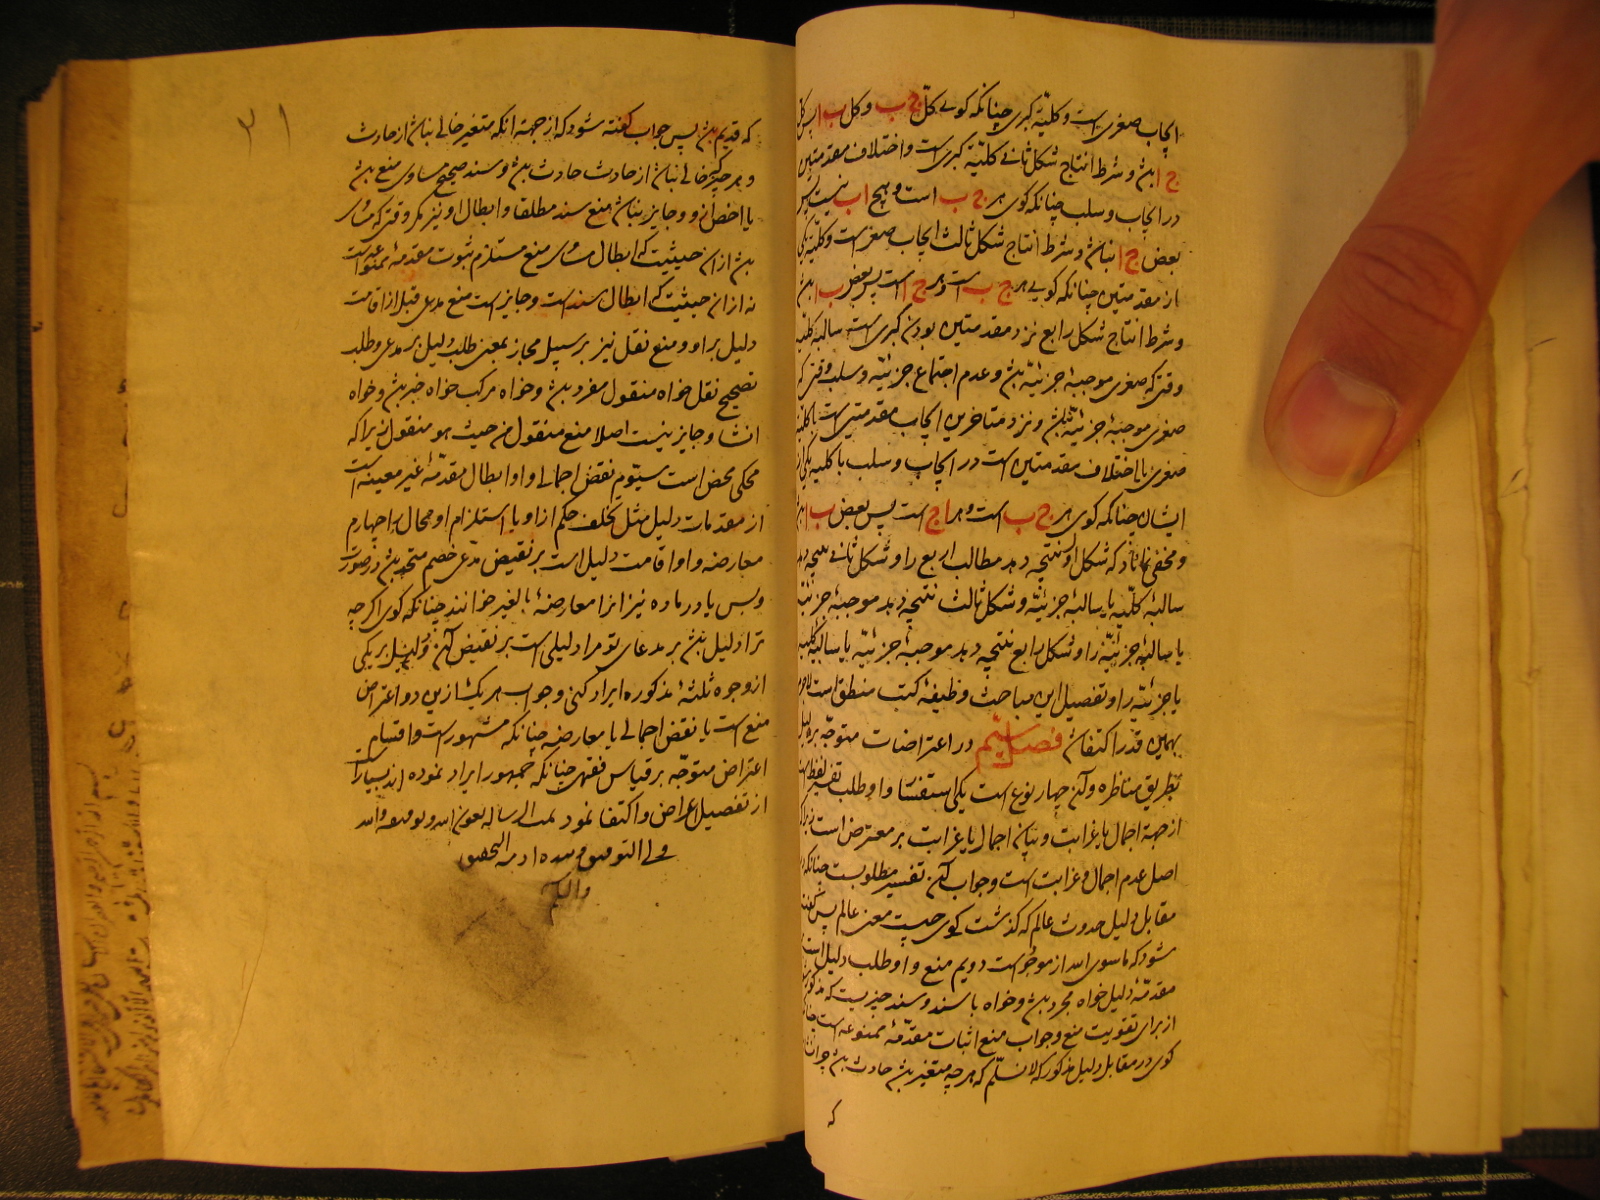 ایجاب صغری است و کلیّة کبری چنانکه کوی کلّ ج ب و کل ب ا پس کل
ج ا بُن و شرط انتاج شکل ثانی کلیّة کبری است و اختلاف مقدمتین
در ایجاب و سلب چنانکه کوی هر ج ب است و هیچ ا ب نیست پس
بعض ج ا نباشد و شرط انتاج شکل ثالث ایجاب صغری است و کلیّة یکی
از مقدمتین چنانکه کویی هر ج ب است و هر ج ا است پس بعض ب ا بُن
و شرط انتاج شکل رابع نزد مقدمتین بودن کبری است سالبه کلیّه
وقتی که صغری موجبۀ جزئیّه بُن و عدم اجتماع جزئیّه و سلب وقتی که
صغری موجبۀ جزئیّه نباشد و نزد متاخرین ایجاب مقدمتین است با کلیّة
صغری یا اختلاف مقدمتین است در ایجاب و سلب با کلیه یکی از
ایشان چنانکه کوی هر ج ب است و هر ا ج است پس بعض ب ا بُن
و مخفی نماند که شکل اول نتیجه دهد مطالب اربع را و شکل ثانی نتیجه دهد
سالبۀ کلّیه یا سالبۀ جزئیّه و شکل ثالث نتیجه دهد موجبۀ جزئیّه
یا سالبۀ جزئیّه را و شکل رابع نتیجه دهد موجبۀ جزئیّه یا سالبۀ کلیّه
یا جزئیّه را و تفصیل این مباحث وظیفۀ کتب منطق است لاجرم
بهمین قدر اکتفا فصل سیّم در اعتراضات متوجّه بر دلیل
بطریق مناظره و آن چهار نوع است یکی استفسار و او طلب تفسیر لفظ است
از جهة اجمال یا غرابت و بیان اجمال یا غرابت بر معترض است زیرا که
اصل عدم اجمال و غرابت است و جواب آن تفسیر مطلوبست چنانکه
مقابل دلیل حدوث عالم که کذشت کوی چیست معنی عالم پس کفته
میشود که ماسوی الله از موجود است دویم منع و او طلب دلیل است
مقدمّۀ دلیل خواه مجرد بُن و خواه با سند و سند چیزیست که مذکور
از برای تقویت منع و جواب منع اثبات مقدّمۀ ممنوعه است
کوی در مقابل دلیل مذکور که لا نسلّم که هر چه متغیر بُن حادث بُن چرا
که
۳۱
که قدیم بُن پس جواب کفته شود که از جهة انکه متغیر خالی نباشد از حادث
و هر چیز که خالی نباشد از حادث حادث بُن و سند صحیح مساوی منع بُن
یا اخص از او و جایز نباشد منع سند مطلقا و ابطال او نیز مکر وقتی که مساوی
بُن از آن حیثیت که ابطال مساوی منع مستلزم ثبوت مقدمۀ ممنوعه است
نه از ان حیثیت که ابطال سند است و جایز است منع مدعی قبل از اقامت
دلیل بر او و منع نقل نیز بر سبیل مجاز بمعنی طلب دلیل بر مدعی و طلب
تصحیح نقل خواه منقول مفرد بُن و خواه مرکب خواه خبر بُن و خواه
انشا و جایز نیست اصلا منع منقول من حیث هو منقول زیرا که
محکی محض است سیّوم نقض اجمالی و او ابطال مقدمّۀ غیر معینه است
از مقدمات دلیل مثل تخلف حکم از او یا استلزام او محال را چهارم
معارضه و او اقامت دلیل است بر نقیض مدّعی خصم متحد بُن در صورت
و بس یا در ماده نیز انرا معارضۀ بالغیر خوانند چنانکه کوی اکر چه
ترا دلیل بُن بر مدعای تو مرا دلیلی است بر نقیض آن و دلیل بر یکی
از وجوه ثلثۀ مذکوره ایراد کنی و جواب هر یک ازین دو اعتراض
منع است یا نقض اجمالی یا معارضه چنانکه مشهور است و اقسام
اعتراض متوجّه بر قیاس فقهی چنانکه جمهور ایراد نموده اند بسیار
از تفصیل اعراض و اکتفا نمود تمت الرسالة بعون الله و توفیقه والله
ولی التوفیق و بیده ازمة التحقیق